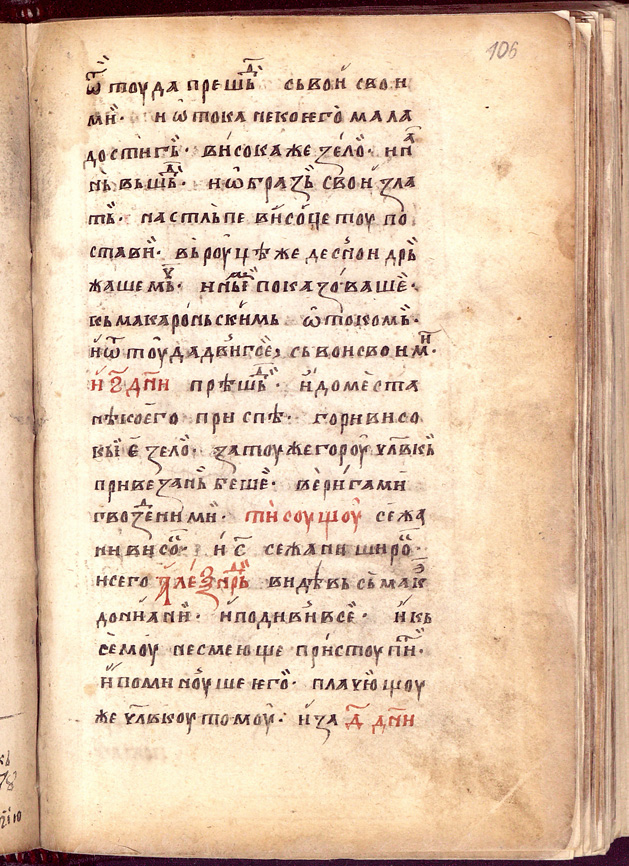 106
ѿ тоуда прѣшⷣь съ вои свои
ми· и ѿтока некоѥго мала
достигь· висока же ꙃело· и на
нь вьшⷣь· и ѡбразь свои зла
ть· на стльпе висоце тоу по
стави· вь роуцѣ же деснои дрь
жаше мь· и
показоваше·
кь макарѡньскимь ѿтокомь·
и ѿ тоуда двигсе, сь вои своими·
и ꙅ҃ дн҃и прѣшⷣь· и до места
нѣкоего приспѣ· гори висо
кы е ꙃело· за тоу же гороу чл҃вкь
привезань беше· веригами
гвозⷣеними· тисоущоу сежа
ни висо· и с҃ сежани широ·
и сего Алеѯанⷣрь видѣвь сь мак
донꙗни· и подививсе· и кь
семоу не смеюще пристоупити·
и поминоуше ѥго· плачющоу
же чл҃вкоу томоу· и за д҃ дн҃и